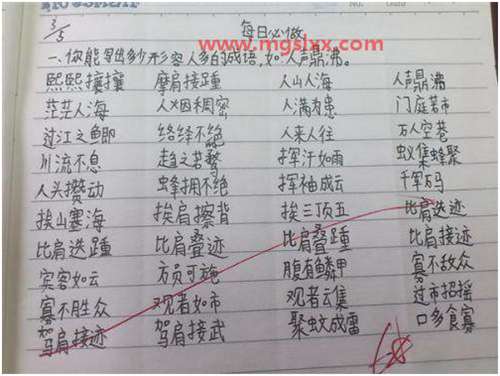 3/5
每日必做
www.mgslxx.com
一、你能写出多少形容人多的成语,如:人声鼎沸。
熙熙攘攘 摩肩接踵 人山人海 人声鼎沸
茫茫人海 人烟稠密 人满为患 门庭若市
过江之鲫 络绎不绝 人来人往 万人空巷
川流不息 趋之若鹜 挥汗如雨 蚁集蜂聚
人头攒动 蜂拥不绝 挥袖成云 千军万马
挨山塞海 挨肩擦背 挨三顶五 比肩迭迹
比肩迭踵 比肩叠迹 比肩叠踵 比肩接迹
宾客如云 方员可施 腹有鳞甲 寡不敌众
寡不胜众 观者如市 观者云集 过市招摇
驾肩接迹 驾肩接武 聚蚊成雷 口多食寡